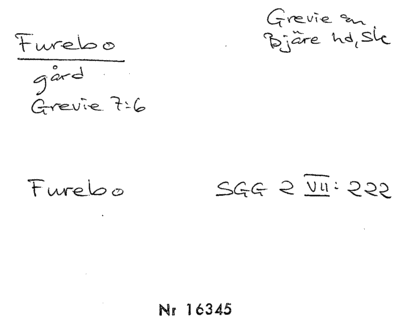 Furebo
gård
Grevie 7:6
Grevie sn
Bjäre hd, Sk
Furebo SGG 2 VII: 222
Nr 16345